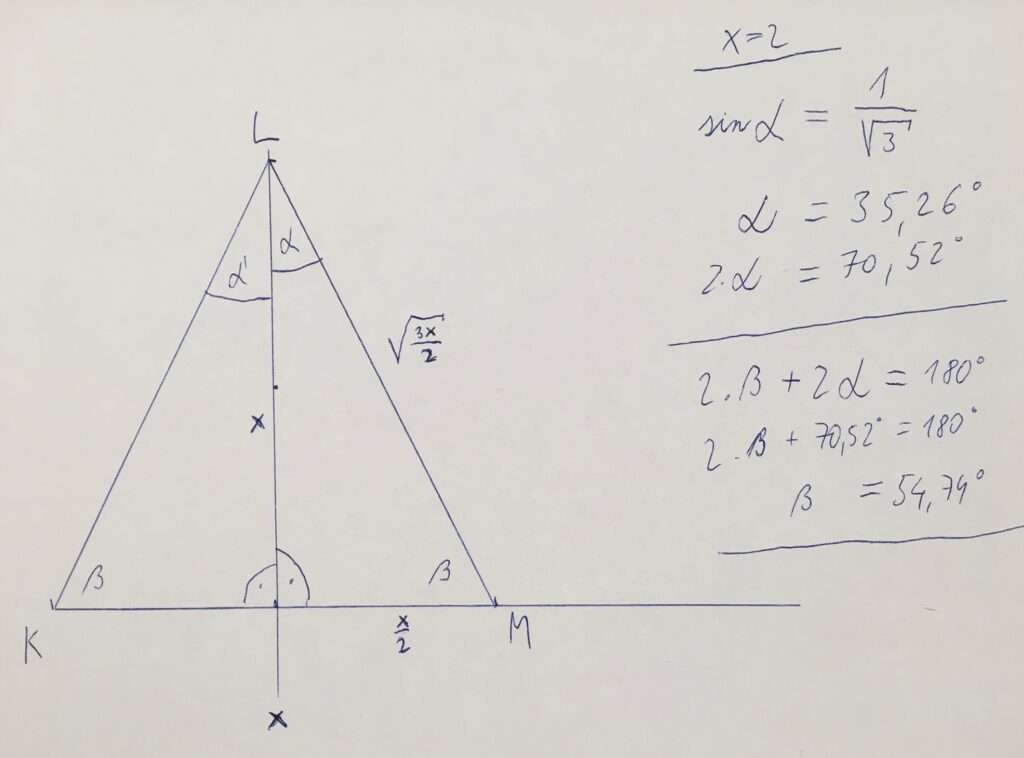 L
α' α
√(3x/2)
x
β β
K x/2 M
x
x=2
sin α = 1/√3
α = 35,26°
2.α = 70,52°
2.β + 2α = 180°
2.β + 70,52° = 180°
β = 54,74°